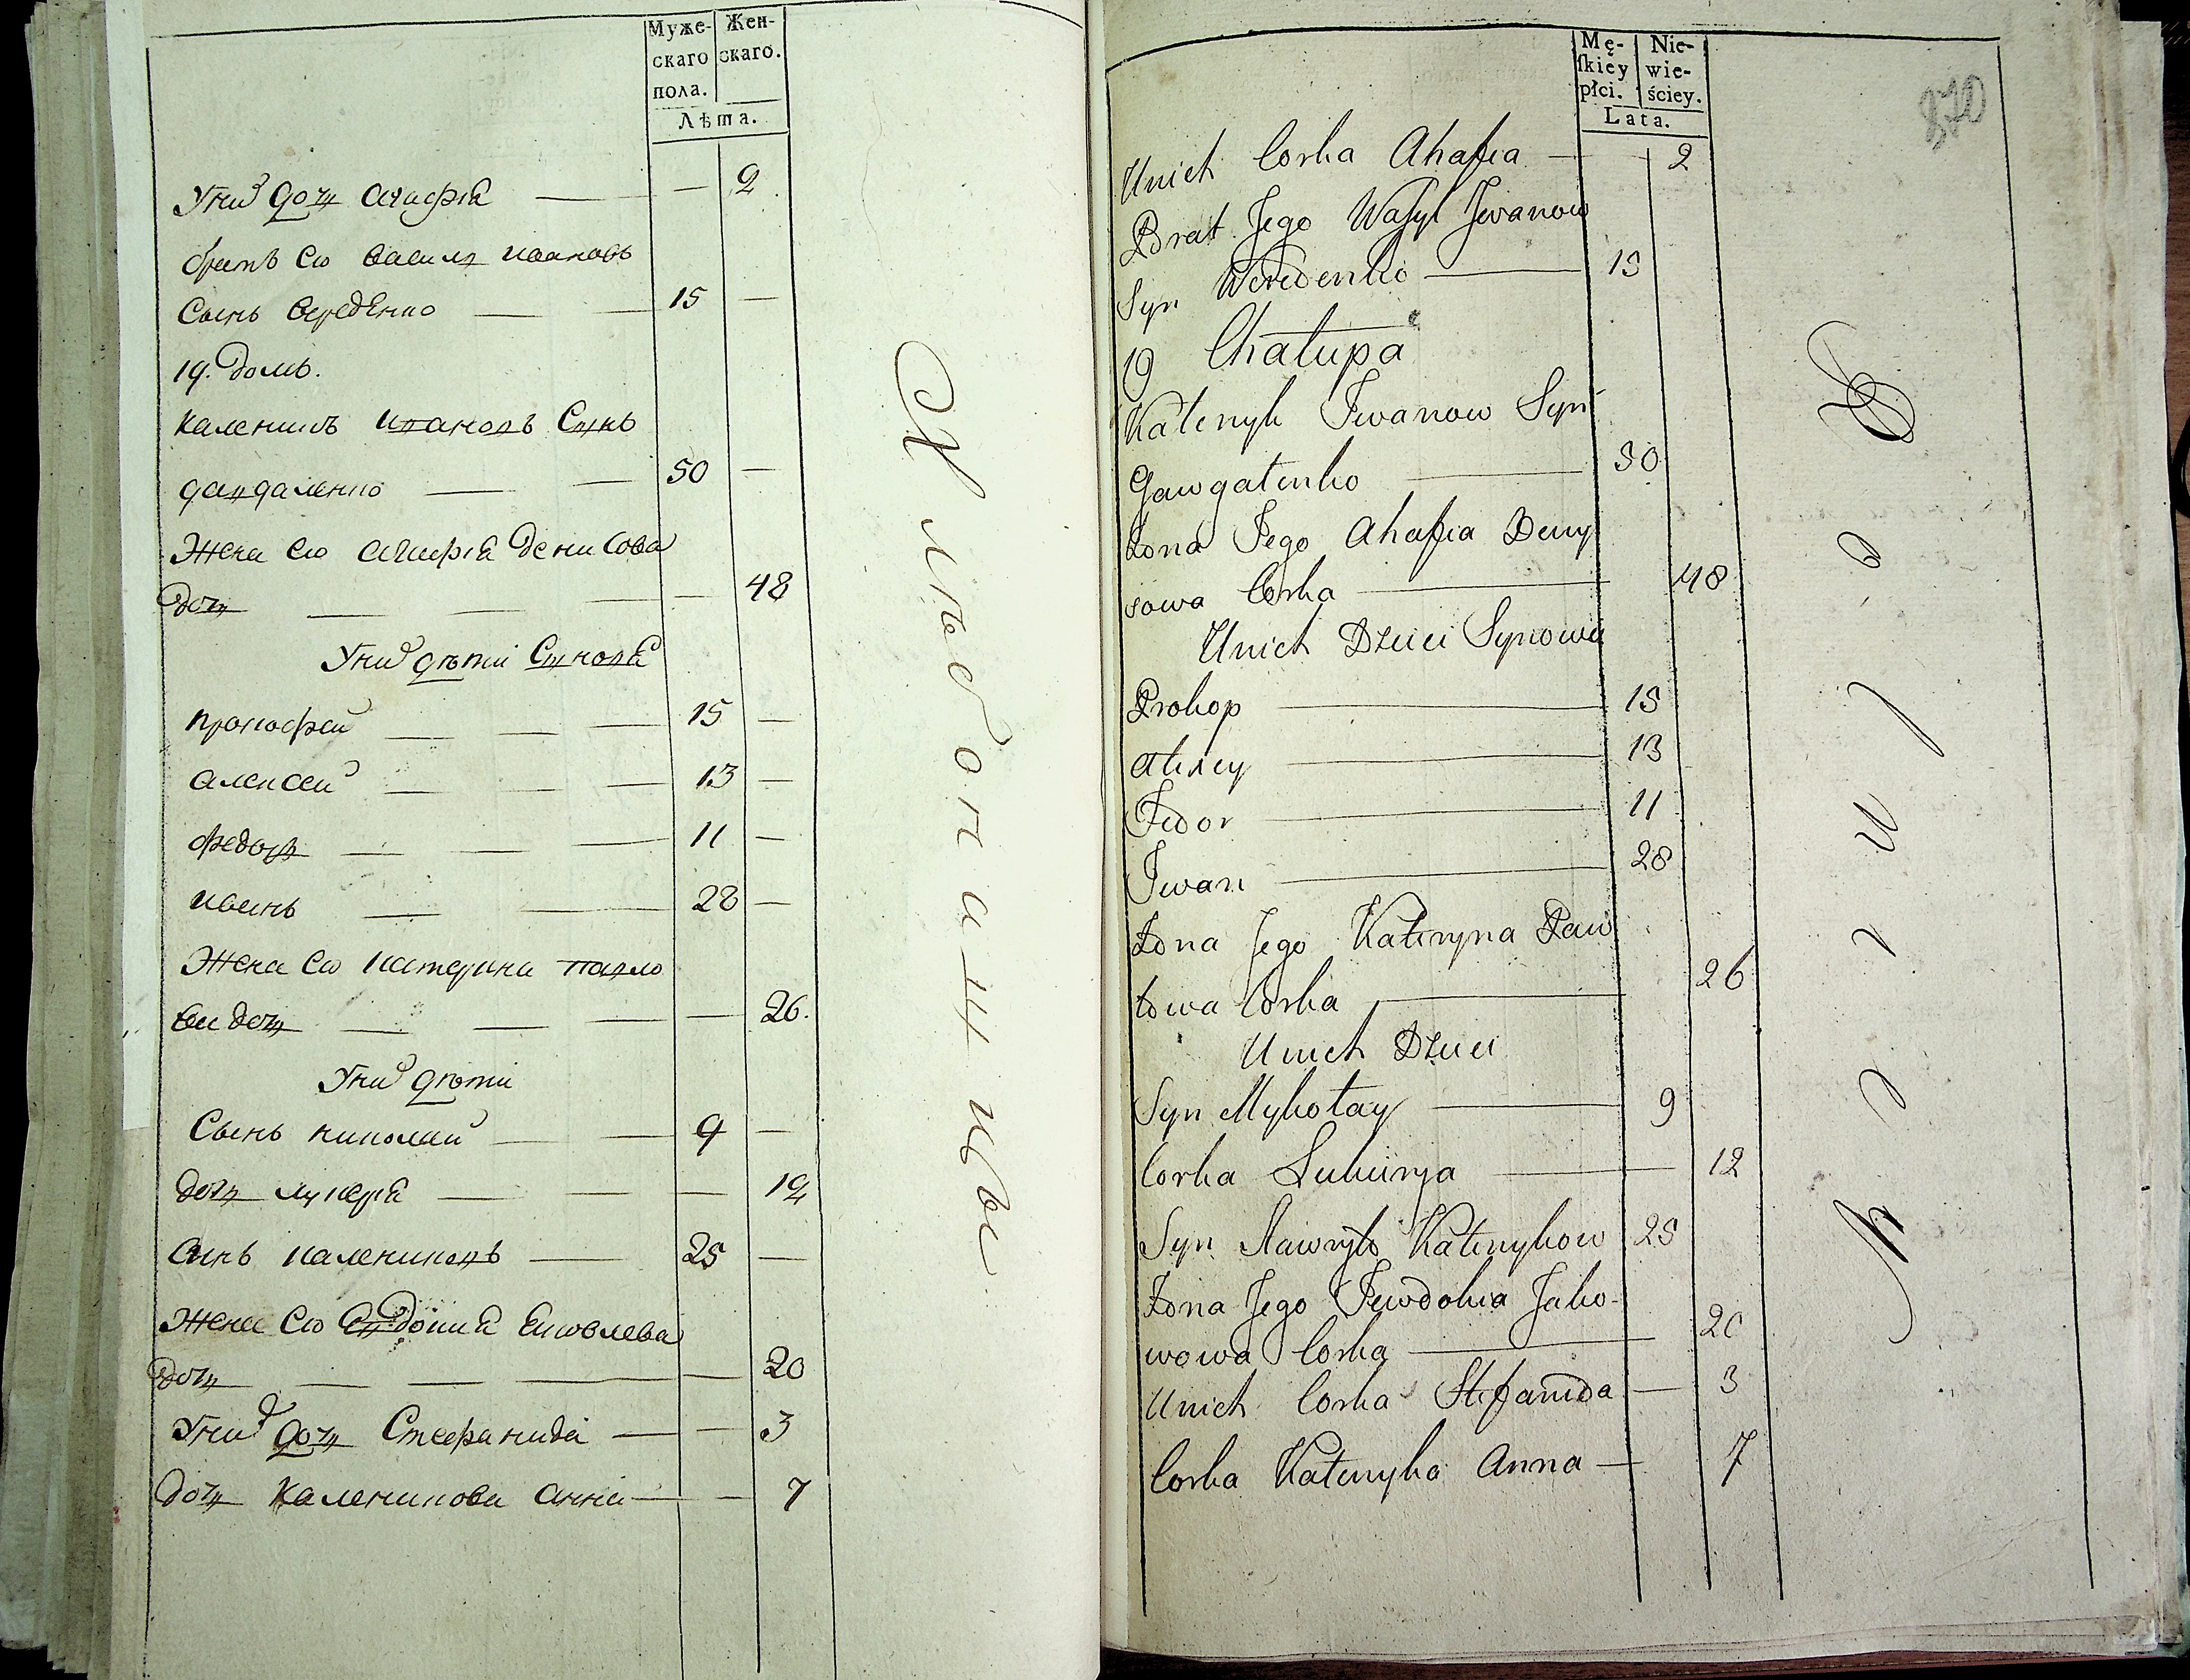 Муже-
скаго
пола.
Жен-
скаго.
Лѣта.
Уних дочъ Агафія — — 2
братъ его Василъ Ивановъ
Сынъ Середенко — — 15 —
19. домъ.
Каленикъ Ивановъ Сынъ
Гавгаленко — — 50 —
Жена его Агафія Денисова
дочъ — — — — 48
Уних дѣти Сыновя
Прокофей — — — 15 —
Алексей — — — 13 —
Федоръ — — — 11 —
Иванъ — — 28 —
Жена его Катерина Павло
ва дочъ — — — — 26.
Уних дѣти
Сынъ Николай — — 9 —
дочъ Лукерія — — — 12
Синъ Калениковъ — 25 —
Жена его Евдокия Яковлева
дочъ — — — — 20
Уних дочъ Стефанида — — 3
дочъ Каленикова Анна — — 7
Хлѣбопашцы
Mę-
ſkiey
płci.
Nie-
wie-
ściey.
Lata.
870
Unich Corka Ahafia — — 2
Brat Jego Wasyl Iwanow
Syn Weredenko — 15
19 Chałupa
Kałenyk Iwanow Syn
Gawgałenko — 50
Żona Jego Ahafia Deny
sowa Corka — 48
Unich Dzieci Synowie
Prokop — 15
Alexey — 13
Fedor — 11
Iwan — 28
Żona Jego Kateryna Paw
łowa Corka — 26
Unich Dzieci
Syn Mykołay — 9
Corka Lukirya — 12
Syn Hawryło Kałenykow 25
Żona Jego Jewdokia Jako-
wowa Corka — 20
Unich Corka Stefanida — 3
Corka Kałenyka Anna — 7